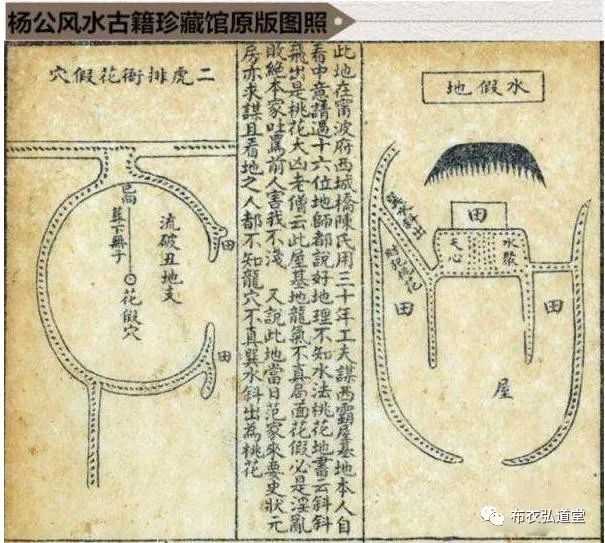 杨公风水古籍珍藏馆原版图照
水假地
田
水聚
天心
巽水斜出
桃花
田
田
屋
此地在甯波府西城橋陳氏用三十年工夫謀西霸屋基地本人自
看中意請過十六位地師都說好地理不知水法桃花地書云斜斜
飛出是桃花大凶老僧云此屋基地龍氣不真局面花假必是淫亂
敗絕本家吐罵前人害我不淺 又說此地當日范家來要史狀元
房亦求謀且看地之人都不知龍穴不真巽水斜出為桃花
二虎排衙花假穴
田
田
流破丑地支
巳向
葬下無子
花假穴
布衣弘道堂